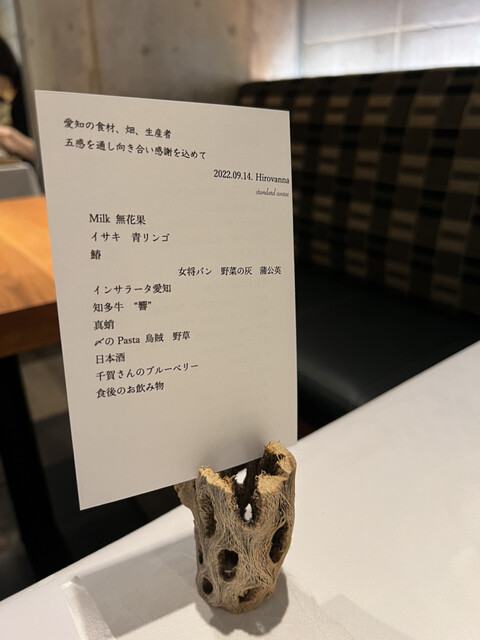 愛知の食材、畑、生産者
五感を通し向き合い感謝を込めて
2022.09.14. Hirovanna
standard course
Milk 無花果
イサキ 青リンゴ
鰆
女将パン 野菜の灰 蒲公英
インサラータ愛知
知多牛 “響”
真蛸
〆のPasta 烏賊 野草
日本酒
千賀さんのブルーベリー
食後のお飲み物